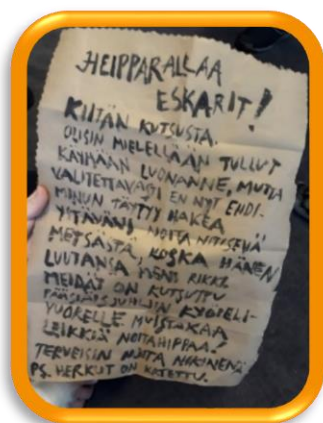 HEIPPARALLAA
ESKARIT!
KIITÄN KUTSUSTA.
OLISIN MIELELLÄÄN TULLUT
KÄYMÄÄN LUONANNE, MUTTA
VALITETTAVASTI EN NYT EHDI.
MINUN TÄYTYY HAKEA
YSTÄVÄNI NOITA
METSÄSTÄ, KOSKA HÄNEN
LUUTANSA MENI RIKKI.
MEIDÄT ON KUTSUTTU
PÄÄSIÄISJUHLIIN KYÖPELI-
VUORELLE MUISTAKAA
LEIKKIÄ NOITAHIPPAA!
TERVEISIN NOITA
PS. HERKUT ON KATETTU.